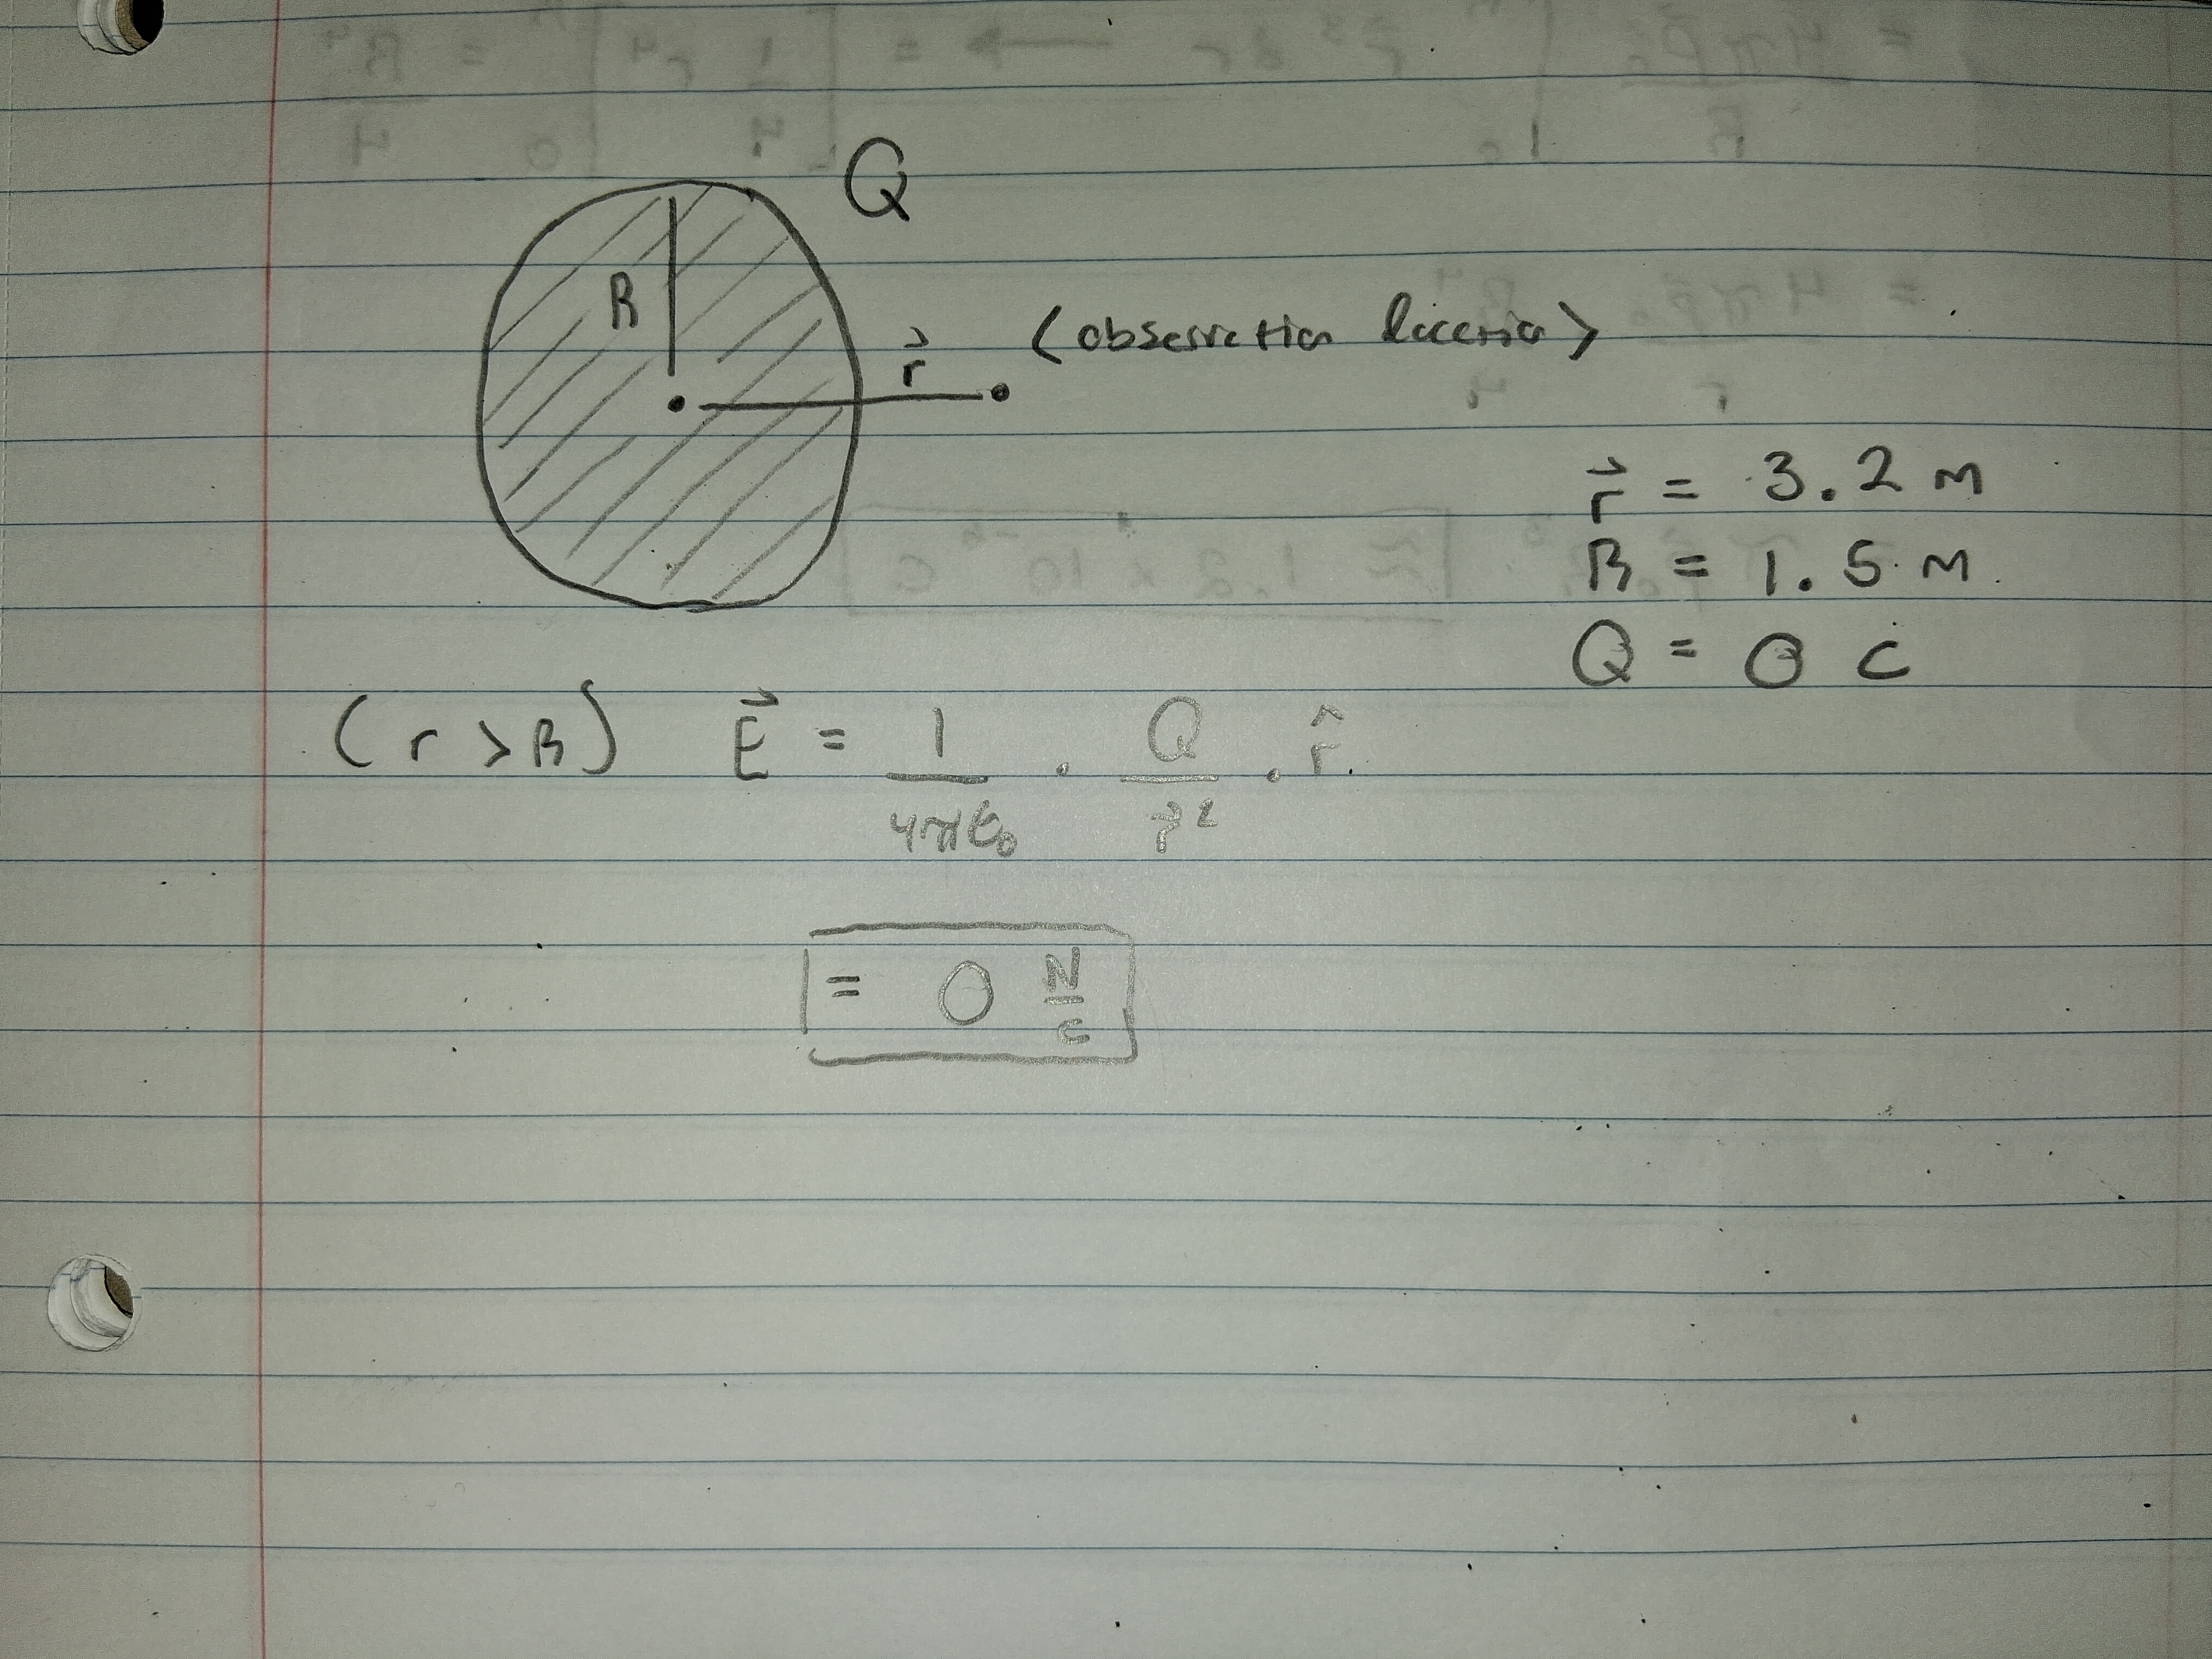 Q
R
r⃗ (observation location)
r⃗ = 3.2 m
R = 1.5 m
Q = 0 C
(r > R) E⃗ = 1/4πε₀ · Q/r² · r̂.
= 0 N/C